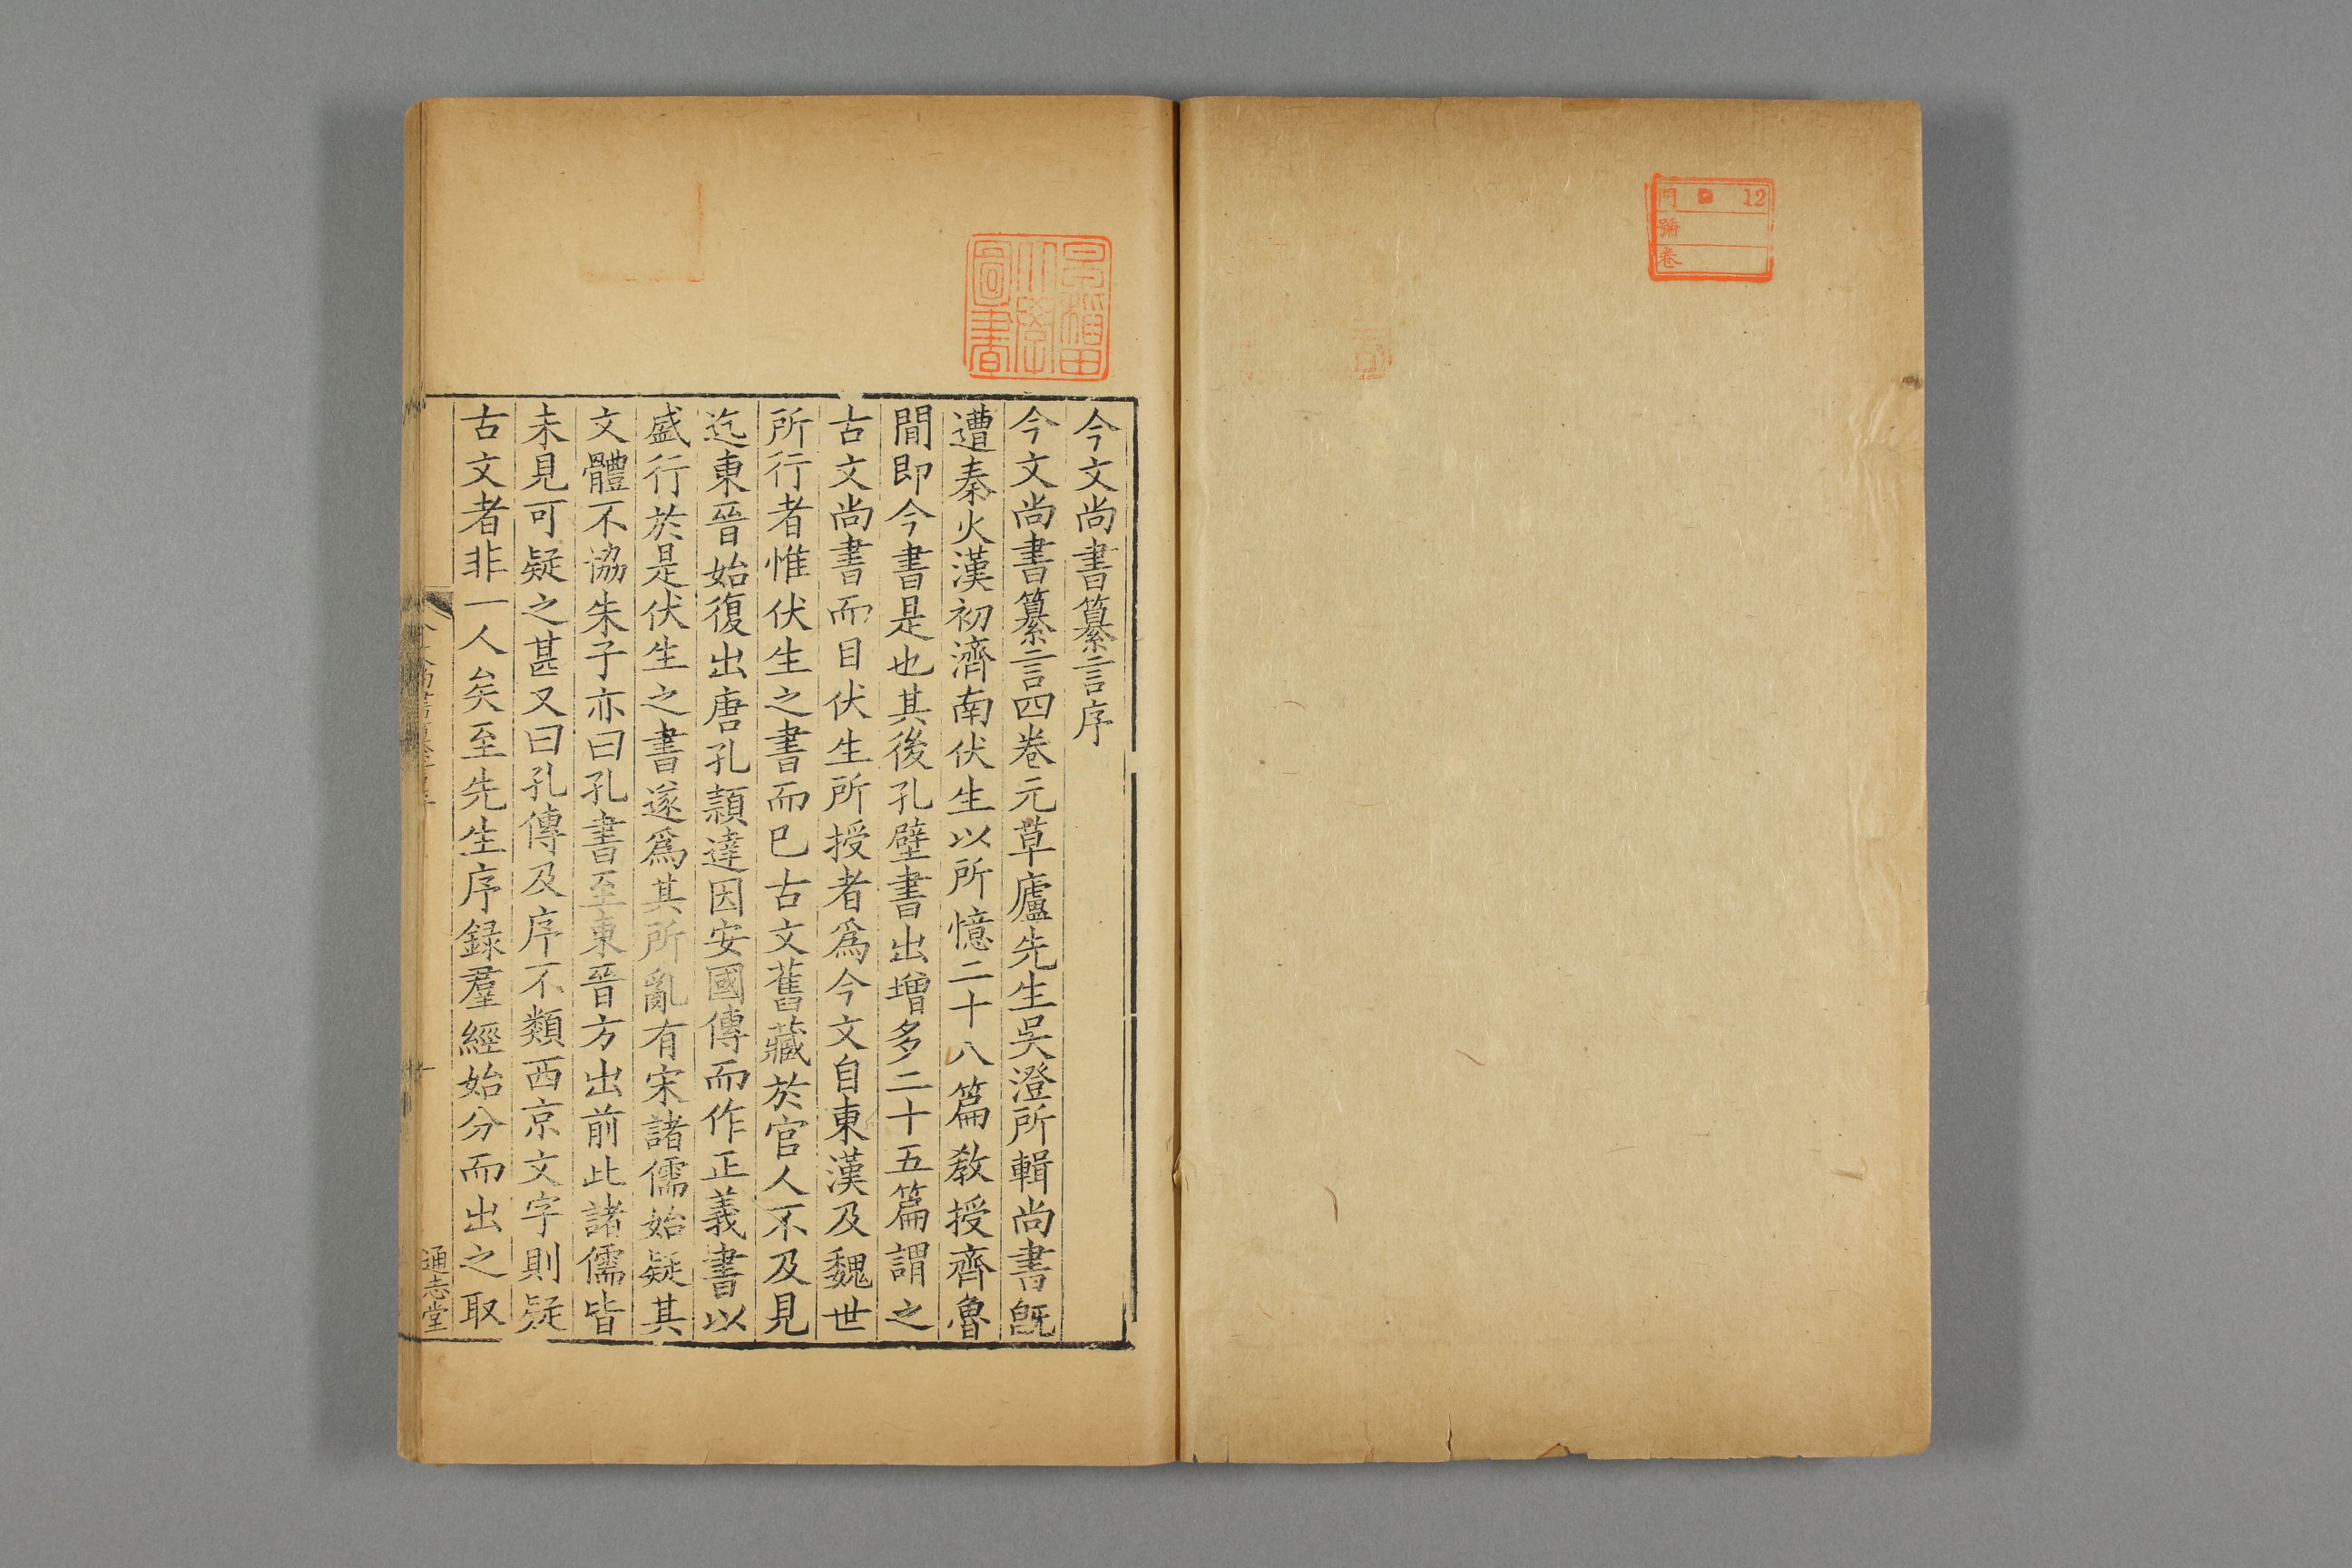 門 12
號
卷
早稲田
大學
圖書
今文尚書纂言序
今文尚書纂言四卷元草廬先生吳澄所輯尚書旣
遭秦火漢初濟南伏生以所憶二十八篇敎授齊魯
間即今書是也其後孔壁書出增多二十五篇謂之
古文尚書而目伏生所授者爲今文自東漢及魏世
所行者惟伏生之書而已古文舊藏於官人不及見
迄東晉始復出唐孔穎達因安國傳而作正義書以
盛行於是伏生之書遂爲其所亂有宋諸儒始疑其
文體不協朱子亦曰孔書至東晉方出前此諸儒皆
未見可疑之甚又曰孔傳及序不類西京文字則疑
古文者非一人矣至先生序録羣經始分而出之取
通志堂